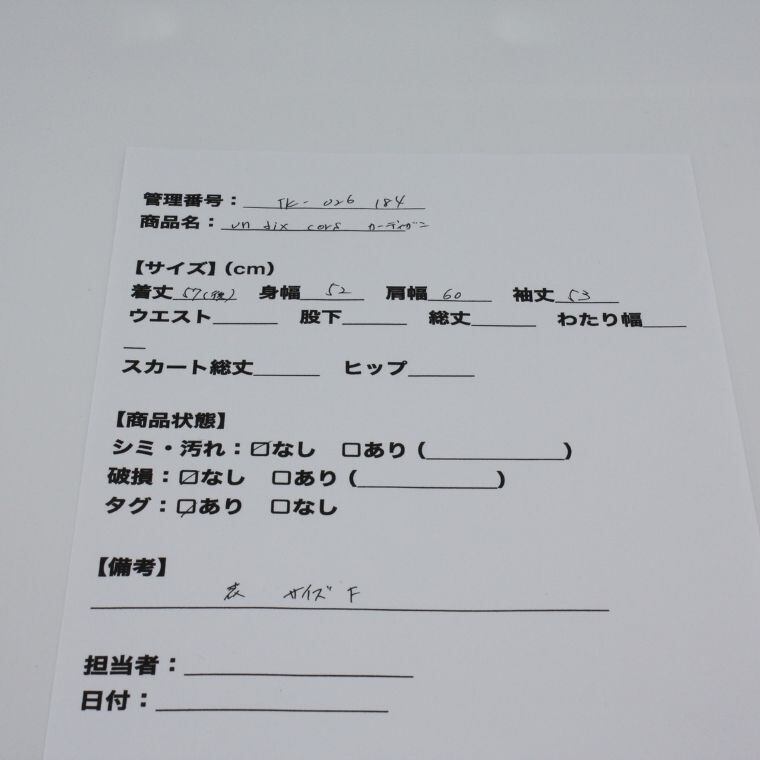 管理番号：TK-026 184
商品名：un dix cors カーディガン
【サイズ】(cm)
着丈57(後) 身幅52 肩幅60 袖丈53
ウエスト______ 股下______ 総丈______ わたり幅____
__
スカート総丈______ ヒップ______
【商品状態】
シミ・汚れ：☑なし □あり (____________)
破損：☑なし □あり (____________)
タグ：☑あり □なし
【備考】
表 サイズ F
担当者：____________________
日付：____________________